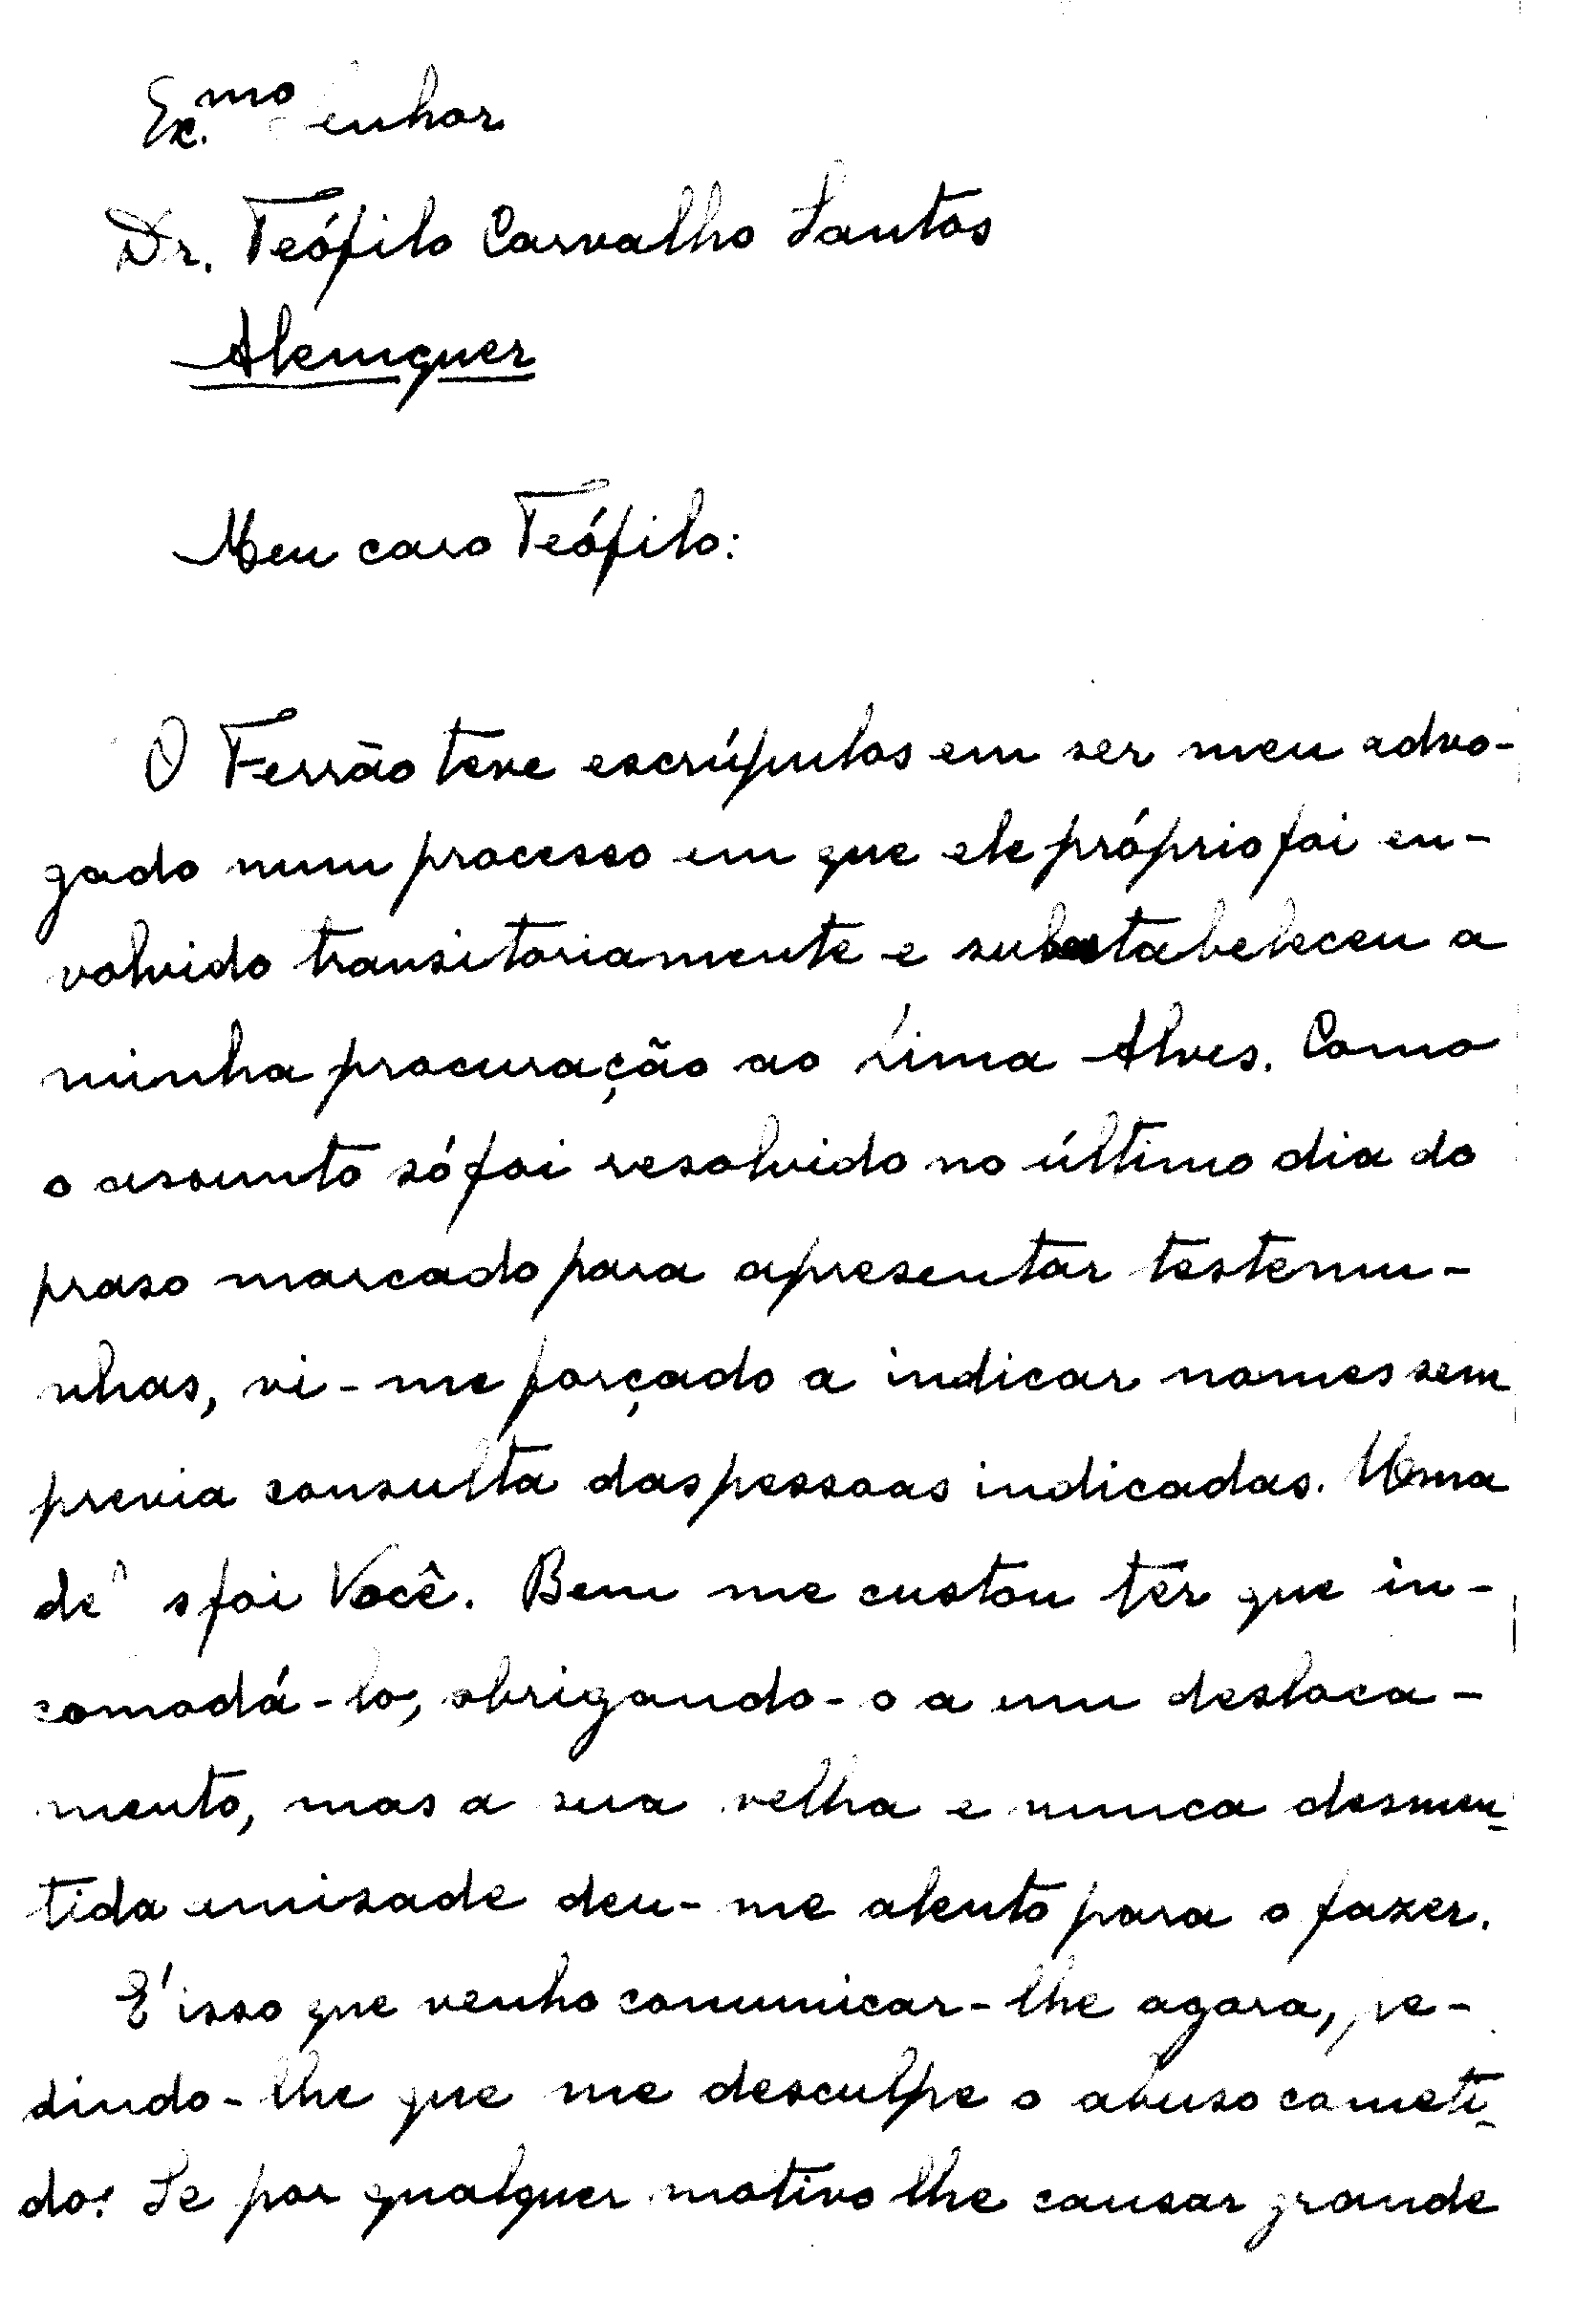 Ex.mo Senhor
Dr. Teófilo Carvalho Santos
Alemquer
Meu caro Teófilo:
O Ferrão teve escrúpulos em ser meu advo-
gado num processo em que ele próprio foi en-
volvido transitoriamente e substabeleceu a
minha procuração ao Lima Alves. Como
o assunto só foi resolvido no último dia do
praso marcado para apresentar testemu-
nhas, vi-me forçado a indicar nomes sem
previa consulta das pessoas indicadas. Uma
delas foi Você. Bem me custou ter que in-
comodá-lo, obrigando-o a um desloca-
mento, mas a sua velha e nunca desmen-
tida amisade deu-me alento para o fazer.
E' isso que venho comunicar-lhe agora, pe-
dindo-lhe que me desculpe o abuso cometi-
do. Se por qualquer motivo lhe causar grande